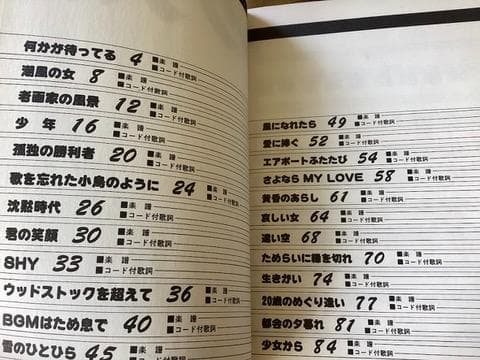 何かが待ってる 4 ■楽譜
■コード付歌詞
潮風の女 8 ■楽譜
■コード付歌詞
老画家の風景 12 ■楽譜
■コード付歌詞
少年 16 ■楽譜
■コード付歌詞
孤独の勝利者 20 ■楽譜
■コード付歌詞
歌を忘れた小鳥のように 24 ■楽譜
■コード付歌詞
沈黙時代 26 ■楽譜
■コード付歌詞
君の笑顔 30 ■楽譜
■コード付歌詞
SHY 33 ■楽譜
■コード付歌詞
ウッドストックを超えて 36 ■楽譜
■コード付歌詞
BGMはため息で 40 ■楽譜
■コード付歌詞
雪のひとひら 45 ■楽譜
■コード付歌詞
風になれたら 49 ■楽譜
■コード付歌詞
愛に捧ぐ 52 ■楽譜
■コード付歌詞
エアポートふたたび 54 ■楽譜
■コード付歌詞
さよなら MY LOVE 58 ■楽譜
■コード付歌詞
黄昏のあらし 61 ■楽譜
■コード付歌詞
哀しい女 64 ■楽譜
■コード付歌詞
遠い空 68 ■楽譜
■コード付歌詞
ためらいに糸を切れ 70 ■楽譜
■コード付歌詞
生きがい 74 ■楽譜
■コード付歌詞
20歳のめぐり逢い 77 ■楽譜
■コード付歌詞
都会の夕暮れ 81 ■楽譜
■コード付歌詞
少女から 84 ■楽譜
■コード付歌詞